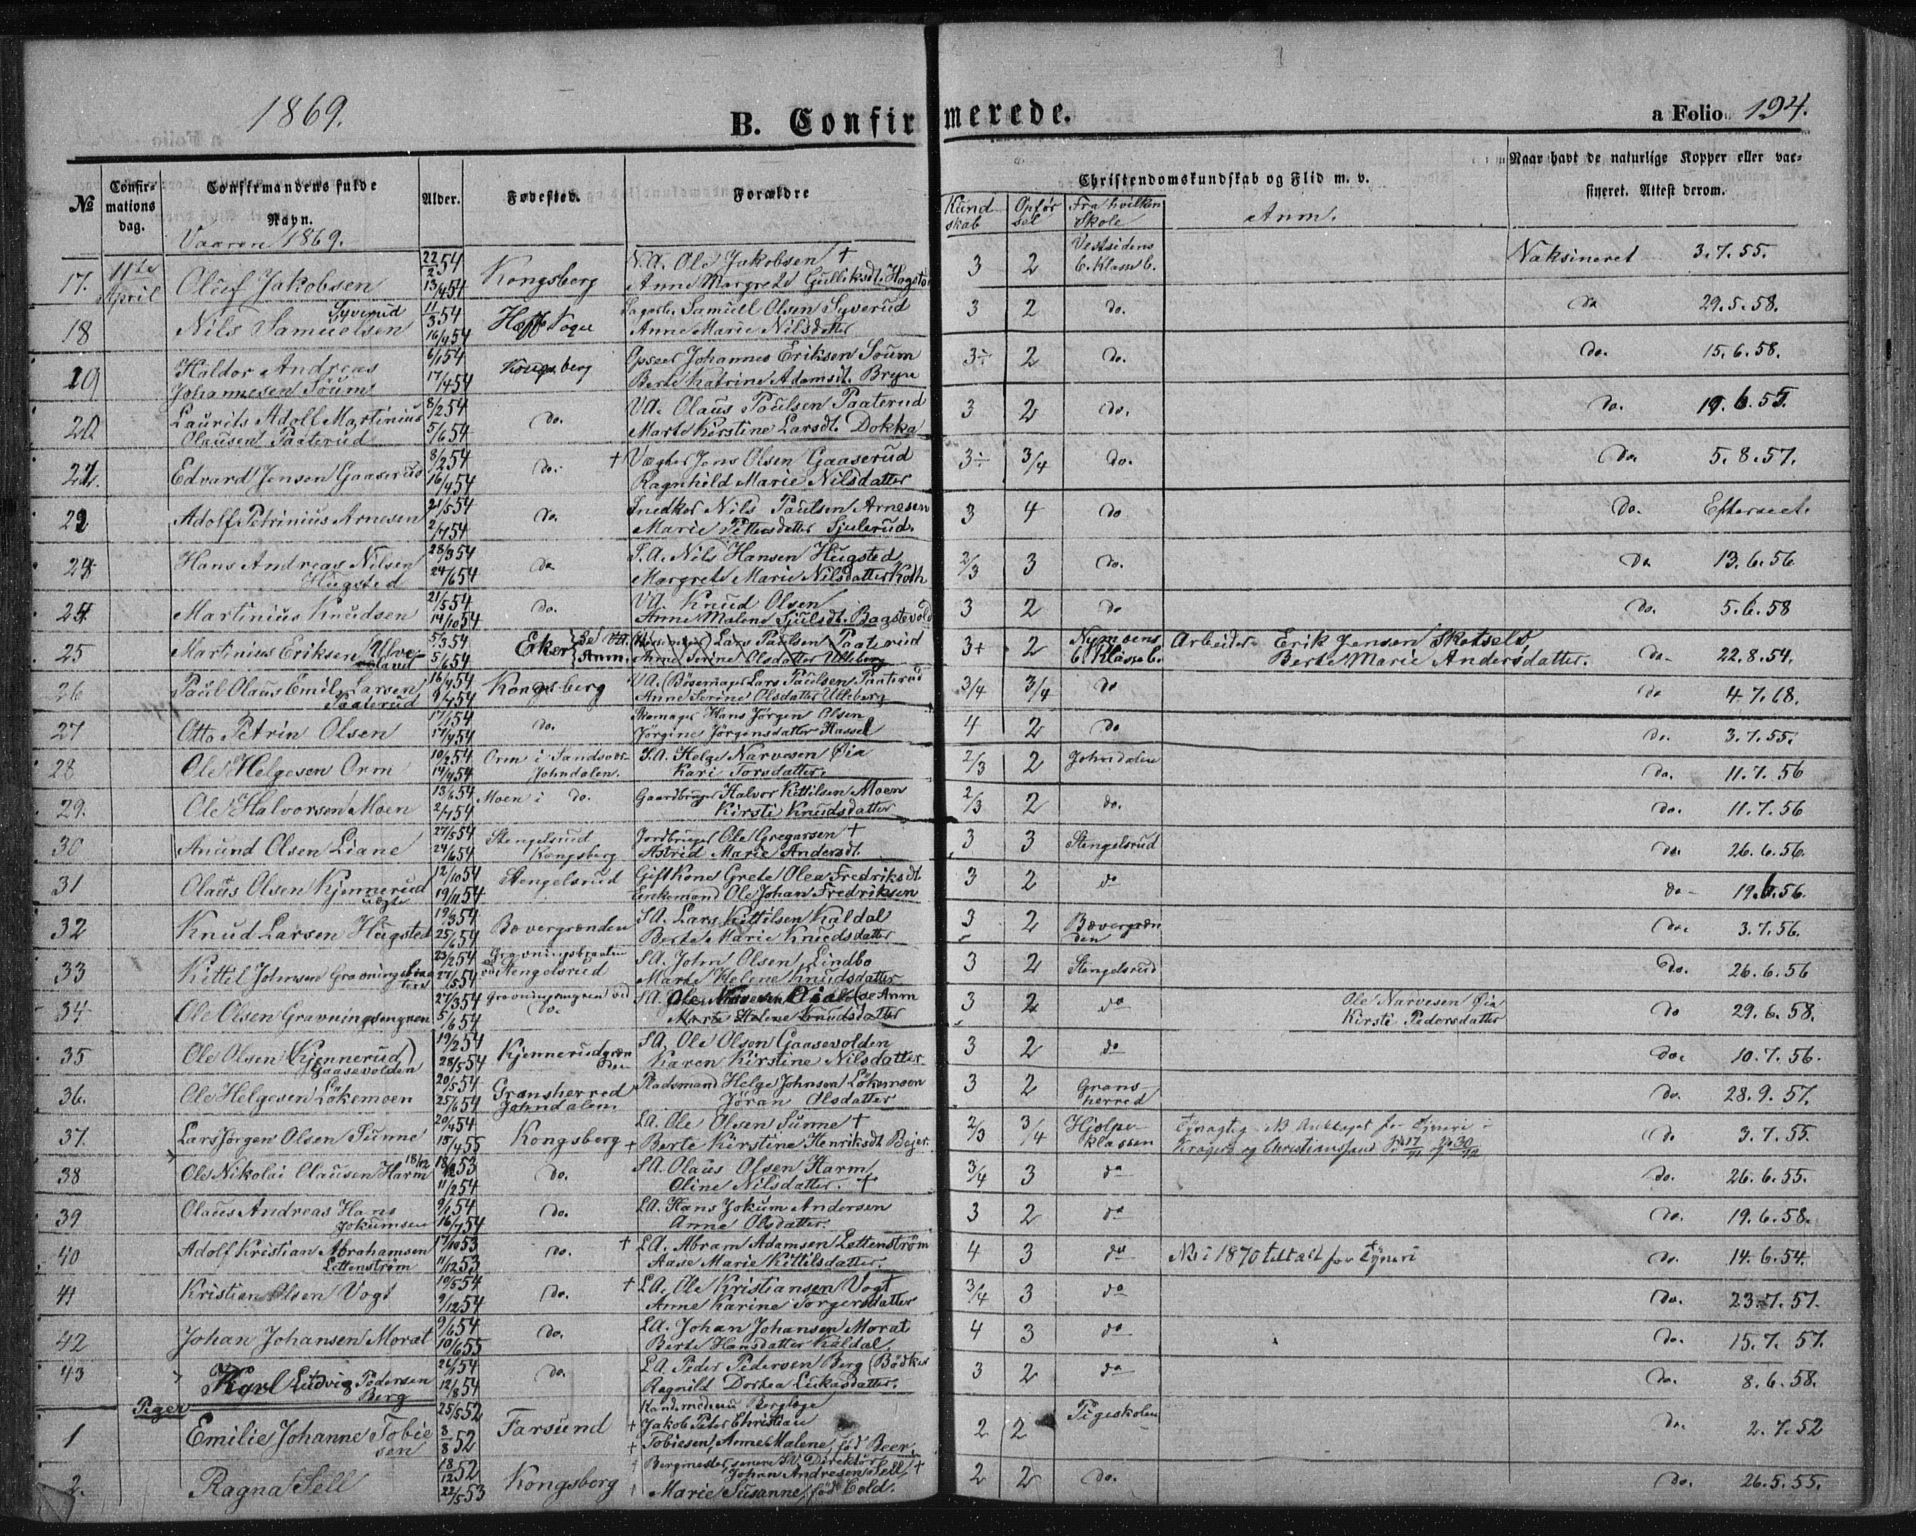 1869.
B. Confirmerede.
a Folio 194.
№
Confirmations dag.
Confirmandens fulde Navn.
Alder.
Fødested.
Forældre
Christendomskundskab og Flid m. v.
Naar havt de naturlige Kopper eller vaccineret. Attest derom.
Kundskab
Opførsel
Fra hvilken Skole
Anm.
Vaaren 1869.
17. 11te April Oluf Jakobsen 22/2 54 13/4 54 Kongsberg N.A. Ole Jakobsen † Anne Margrete Gulliksdt. Hogstad 3 2 Vestsidens 6. Klasse b. Vaksineret 3.7.55.
18 Nils Samuelsen Syverud 11/3 54 16/4 54 Samuel Olsen Syverud Anne Marie Nilsdatter 3 2 do. do 29.5.58.
19 Haldor Andreas Johannesen Soum 6/1 54 17/4 54 Kongsberg Opseer Johannes Eriksen Soum Berte Katrine Adamsdt. Bryn 3÷ 2 do. do. 15.6.58.
20 Laurits Adolf Martinius Olausen Paaterud 8/2 54 5/6 54 do. VA. Olaus Paulsen Paaterud Marte Kirstine Larsdt. Dokka 3 2 do. do. 19.6.55.
21. Edvard Jensen Gaaserud 8/2 54 16/4 54 do. † Vægter Jens Olsen Gaaserud Ragnhild Marie Nilsdatter 3÷ 3/4 do. do. 5.8.57.
22 Adolf Petrinius Arnesen 21/5 54 2/7 54 do. Snedker Nils Paulsen Arnesen Marie Pettersdatter Sjulerud. 3 4 do do. Efterseet.
23 Hans Andreas Nilsen Hugsted 28/3 54 24/6 54 do S.A. Nils Hansen Hugsted Margrete Marie Nilsdatter Koth 2/3 3 do. do 13.6.56
24 Martinius Knudsen 21/5 54 14/10 54 do. VA. Knud Olsen Anne Malene Sjulsdt. Bagstevold 3 2 do do. 5.6.58
25 Martinius Eriksen 5/3 54 5/6 54 Eker Se Anm. Lars Paulsen Paaterud Anne Serine Olsdatter Ulleberg 3+ 2 Nymoens 6. Klasse b. Arbeider Erik Jensen Skotselv Berte Marie Andersdatter. do. 22.8.54.
26 Paul Olaus Emil Larsen Paaterud 16/4 54 9/7 54 Kongsberg VA. (Børsemager Lars Paulsen Paaterud Anne Serine Olsdatter Ulleberg 3/4 3/4 do do 4.7.68.
27 Otto Petrin Olsen 17/1 54 17/4 54 do. Skomager Hans Jørgen Olsen Jørgine Jørgensdatter Hassel 4 2 do do. 3.7.55.
28 Ole Helgesen Orm 10/2 54 14/4 54 Orm i Sandsvær Johndalen. S.A. Helge Narvesen Øia Kari Torsdatter. 2/3 2 Johndalen do. 11.7.56
29. Ole Halvorsen Moen 13/6 54 2/7 54 Moen i do. Gaardbruger Halvor Kittilsen Moen Kirsti Knudsdatter 2/3 2 do. do. 11.7.56
30 Anund Olsen Liane 27/5 54 24/6 54 Stengelsrud Kongsberg Jordbruger Ole Gregarsen † Astrid Marie Andersdt. 3 3 Stengelsrud do. 26.6.56.
31 Olaus Olsen Kjennerud uægte 12/10 54 19/11 54 Stengelsrud Gift Kone Grete Olea Fredriksdt Enkemand Ole Johan Fredriksen 3 2 do do. 19.6.56.
32 Knud Larsen Hugsted 19/3 54 25/6 54 Bævergrænden SA. Lars Kittilsen Kaldal Berte Marie Knudsdatter 3 2 Bævergrænden do. 3.7.56.
33 Kittil Johnsen Gravningsbraaten 23/2 54 27/5 54 Gravningsbraaten ved Stengelsrud SA. John Olsen Lindbo Marte Helene Knudsdatter 3 2 Stengelsrud do. 26.6.56
34 Ole Olsen Gravningsengen 27/3 54 5/6 54 Gravningsengen ved do. SA. Ole Narvesen Øia (se Anm Marte Helene Knudsdatter 3 2 do Ole Narvesen Øia Kirsti Pedersdatter do 29.6.58.
35 Ole Olsen (Kjennerud) Gaasevolden 19/2 54 28/5 54 Kjennerudgrænden SA. Ole Olsen Gaasevolden Karen Kirstine Nilsdatter 3 2 do do. 10.7.56.
36. Ole Helgesen Løkemoen 20/5 54 25/6 54 Gransherred Johndalen. Pladsmand Helge Johnsen Løkemoen Jøran Olsdatter 3 2 Gransherred do. 28.9.57.
37. Lars Jørgen Olsen Sunne 20/4 54 18/4 55 Kongsberg LA. Ole Olsen Sunne † † Berte Kirstine Henriksdt Bejer. 2/3 3/4 Hjelpeklassen Tyvagtig NB Anklaget for Tyveri i Kragerø og Christianssand do. 3.7.55.
38 Ole Nikolai Olausen Harm 18/12 53 11/2 54 do. SA. Olaus Olsen Harm Oline Nilsdatter. † 3/4 3 do do. 26.6.55.
39 Olaus Andreas Hans Jokumsen 9/1 54 16/7 54 do. LA. Hans Jokum Andersen Anne Olsdatter. 3 2 do do. 19.6.58.
40 Adolf Kristian Abrahamsen Lettenstrøm 17/10 53 11/12 53 do. † LA. Abram Adamsen Lettenstrøm Aase Marie Kittilsdatter. 4 3 do NB i 1870 tiltalt for Tyveri do. 14.6.54.
41 Kristian Olsen Vogt 10/5 54 9/12 54 do. † LA. Ole Kristiansen Vogt Anne Karine Torgersdatter 3/4 3 do do. 23.7.57.
42 Johan Johansen Morat 9/6 54 10/6 55 do. LA. Johan Johansen Morat Berte Hansdatter Kaldal. 4 3 do do. 15.7.57.
43 Karl Ludvig Pedersen Berg 26/1 54 12/8 54 do. LA. Peder Pedersen Berg (Bødker Ragnild Dorthea Lukasdatter. 3 2 do do. 8.6.58.
Piger
1 Emilie Johanne Tobiesen 25/5 52 8/8 52 Farsund Kand. med. nu Berglæge † Jakob Peter Christian † Tobiesen, Anne Malene, fød Beer. 2 2 Pigeskolen do. 2.7.52
2. Ragna Sell 18/12 52 22/5 53 Kongsberg † Bergmester, senere SV. Direktør Johan Andresen Sell, † † Marie Susanne, fød Cold. 2 2 do. do. 26.5.55.